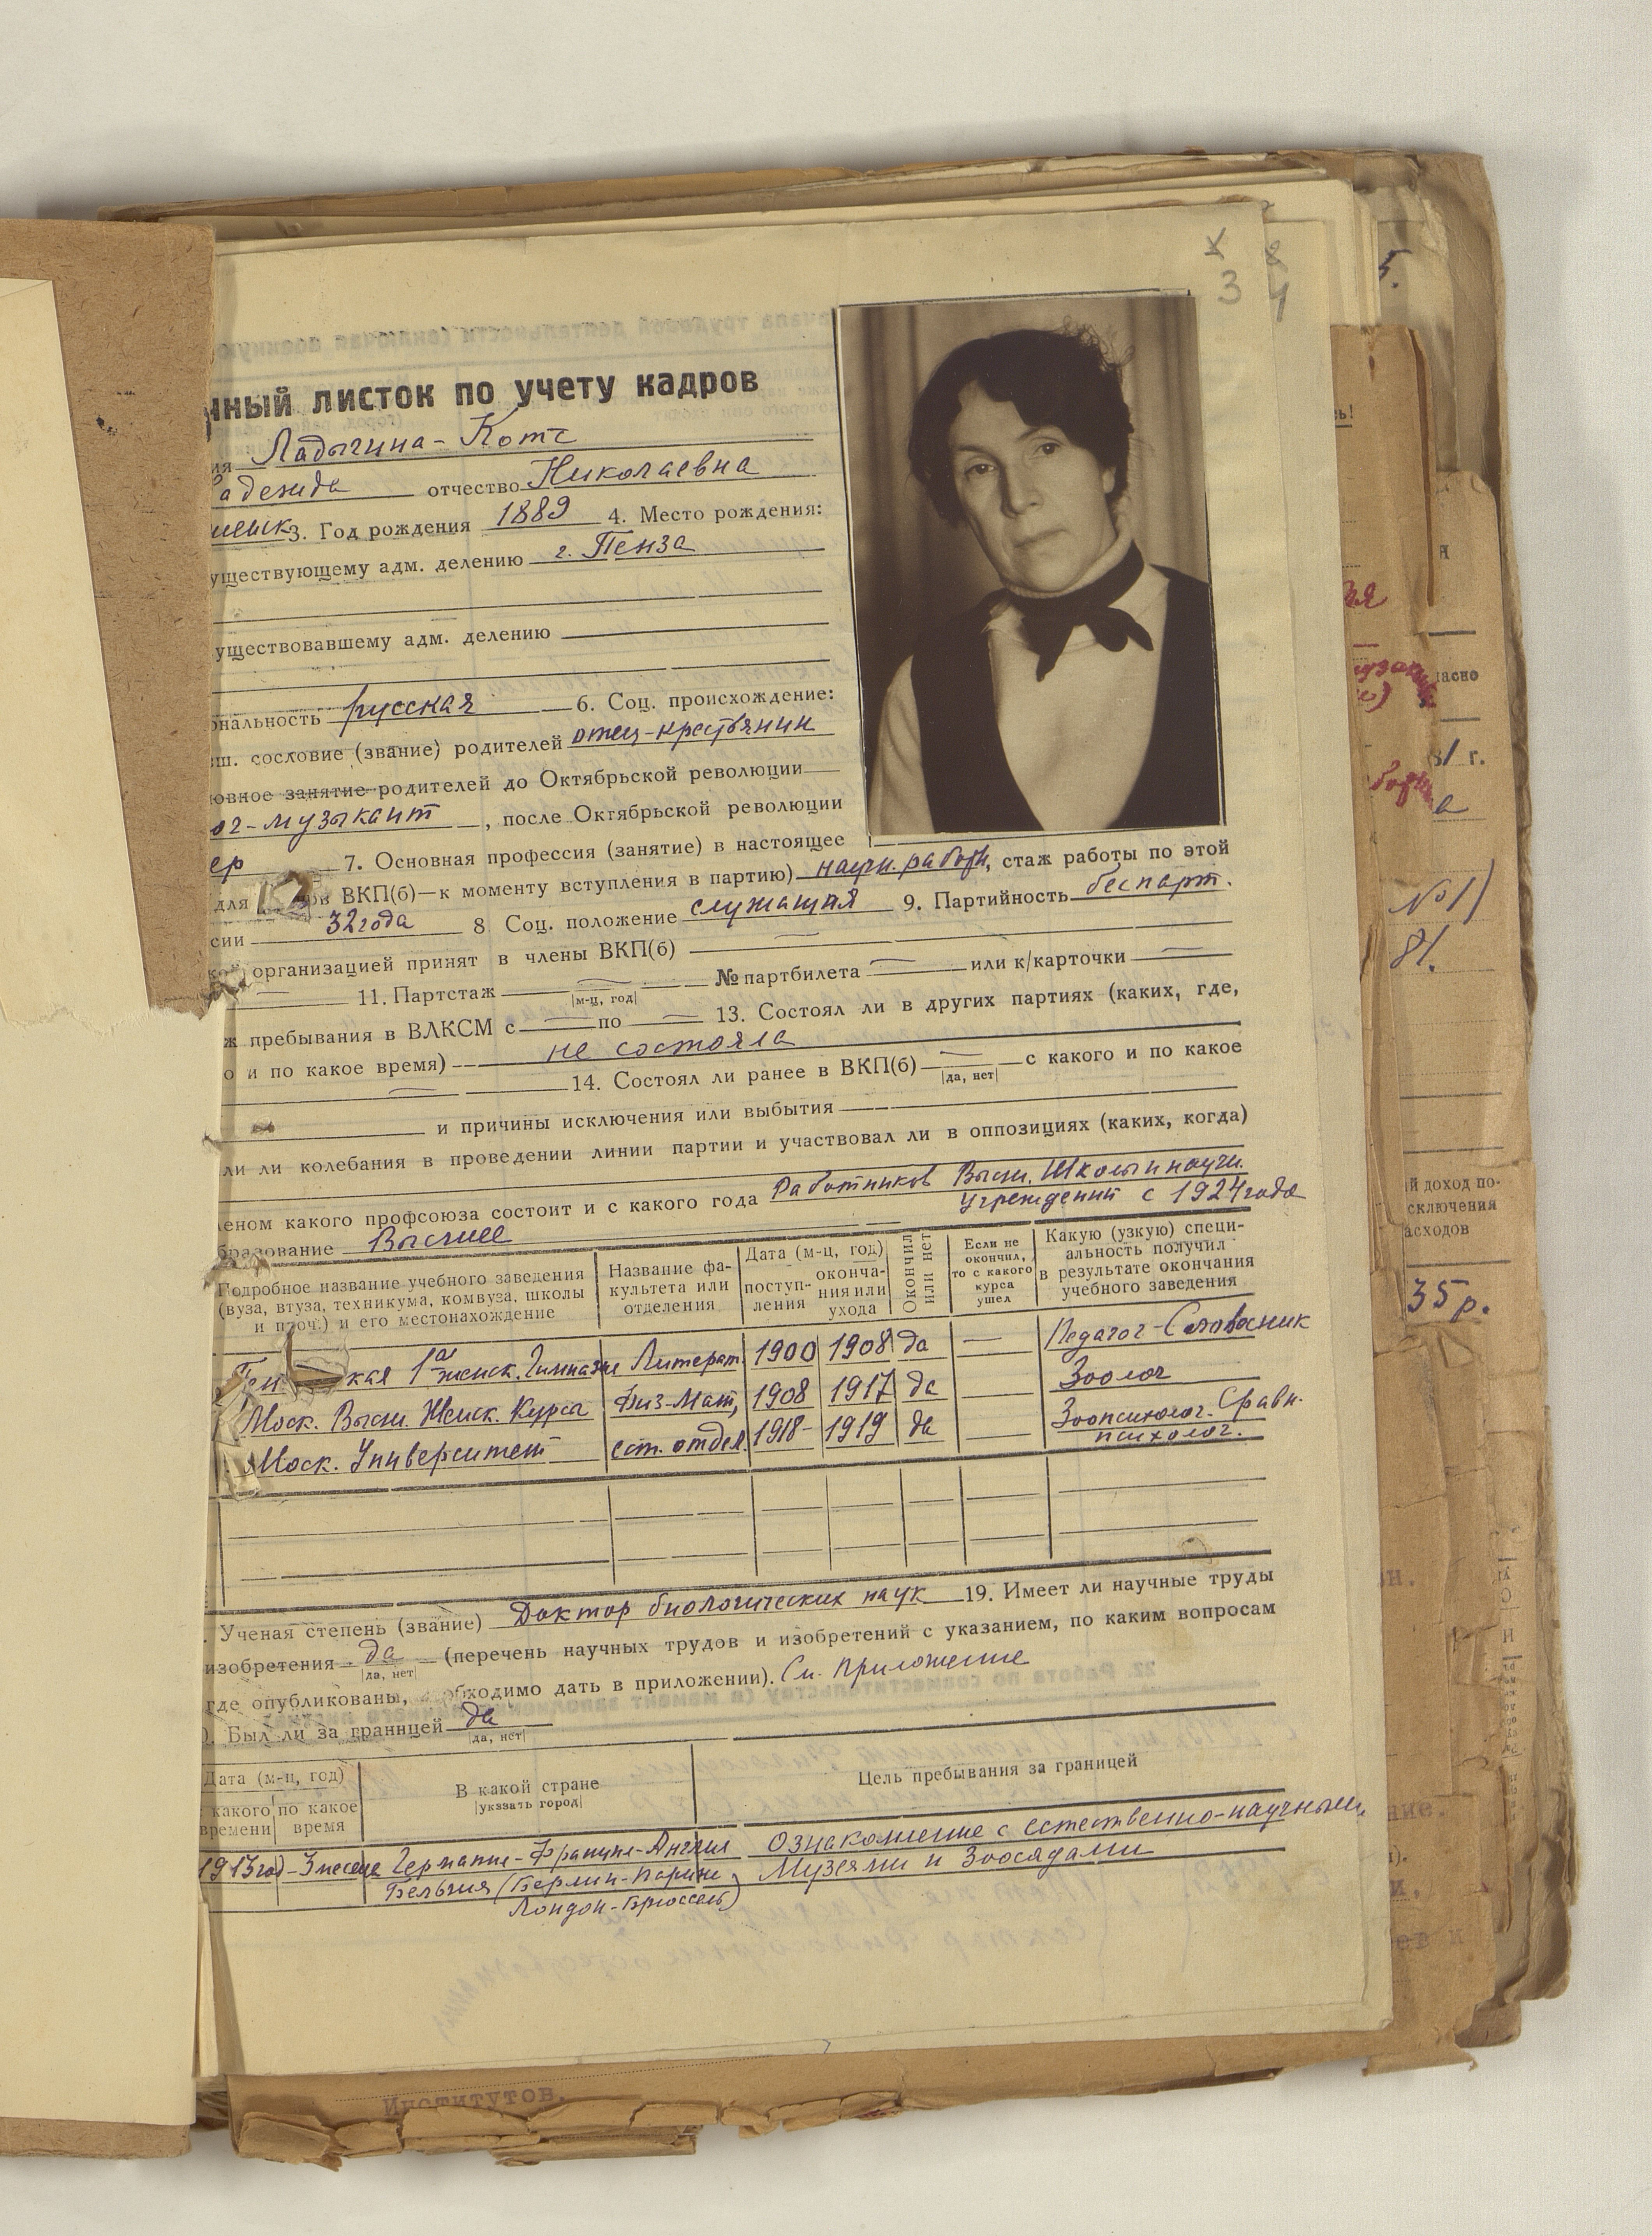 3
нный листок по учету кадров
ия Ладыгина-Котс
адежда отчество Николаевна
3. Год рождения 1889 4. Место рождения:
уществующему адм. делению г. Пенза
уществовавшему адм. делению
ональность русская 6. Соц. происхождение:
ш. сословие (звание) родителей отец-крестьянин
овное занятие родителей до Октябрьской революции
ог-музыкант, после Октябрьской революции
ер 7. Основная профессия (занятие) в настоящее
для ов ВКП(б)—к моменту вступления в партию) научн. работн, стаж работы по этой
сии 32 года 8 Соц. положение служащая 9. Партийность беспарт.
кой организацией принят в члены ВКП(б) —
— 11. Партстаж — № партбилета — или к/карточки —
|м-ц, год|
ж пребывания в ВЛКСМ с — по — 13. Состоял ли в других партиях (каких, где,
о и по какое время) не состояла
— 14. Состоял ли ранее в ВКП(б) — с какого и по какое
|да, нет|
и причины исключения или выбытия
ли ли колебания в проведении линии партии и участвовал ли в оппозициях (каких, когда)
леном какого профсоюза состоит и с какого года Работников Высш. Школы и научн.
учреждений с 1924 года
бразование Высшее
Подробное название учебного заведения (вуза, втуза, техникума, комвуза, школы и проч.) и его местонахождение
Название факультета или отделения
Дата (м-ц, год)
поступления
окончания или ухода
Окончил или нет
Если не окончил, то с какого курса ушел
Какую (узкую) специальность получил в результате окончания учебного заведения
Пен кая 1ая женск. Гимназия Литерат. 1900 1908 да — Педагог-Словесник
Моск. Высш. Женск. Курсы Физ-Мат, 1908 1917 да — Зоолог
Моск. Университет ест. отдел. 1918- 1919 да — Зоопсихолог. Сравн.
психолог.
. Ученая степень (звание) Доктор биологических наук 19. Имеет ли научные труды
изобретения да (перечень научных трудов и изобретений с указанием, по каким вопросам
|да, нет|
где опубликованы, обходимо дать в приложении). См. приложение
). Был ли за границей да
|да, нет|
Дата (м-ц, год)
какого времени
по какое время
В какой стране
|указать город|
Цель пребывания за границей
1913 год - 3 месяца Германия-Франция-Англия Ознакомление с естественно-научными
Бельгия (Берлин-Париж Музеями и Зоосадами
Лондон-Брюссель)
Институтов.
й доход по-
сключения
асходов
35 р.
№ 1)
81.
г.